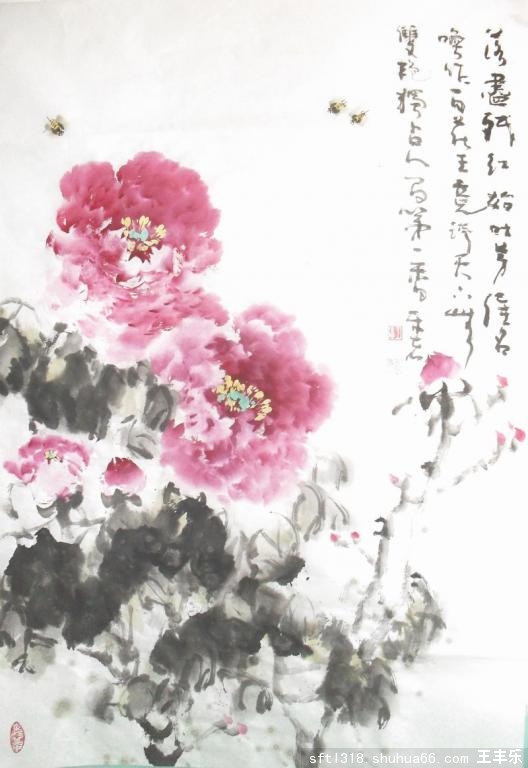 落盡残红始吐芳佳名
唤作百花王竟誇天下無
雙艳獨占人间第一香
sftl318.shuhua66.com 王丰乐